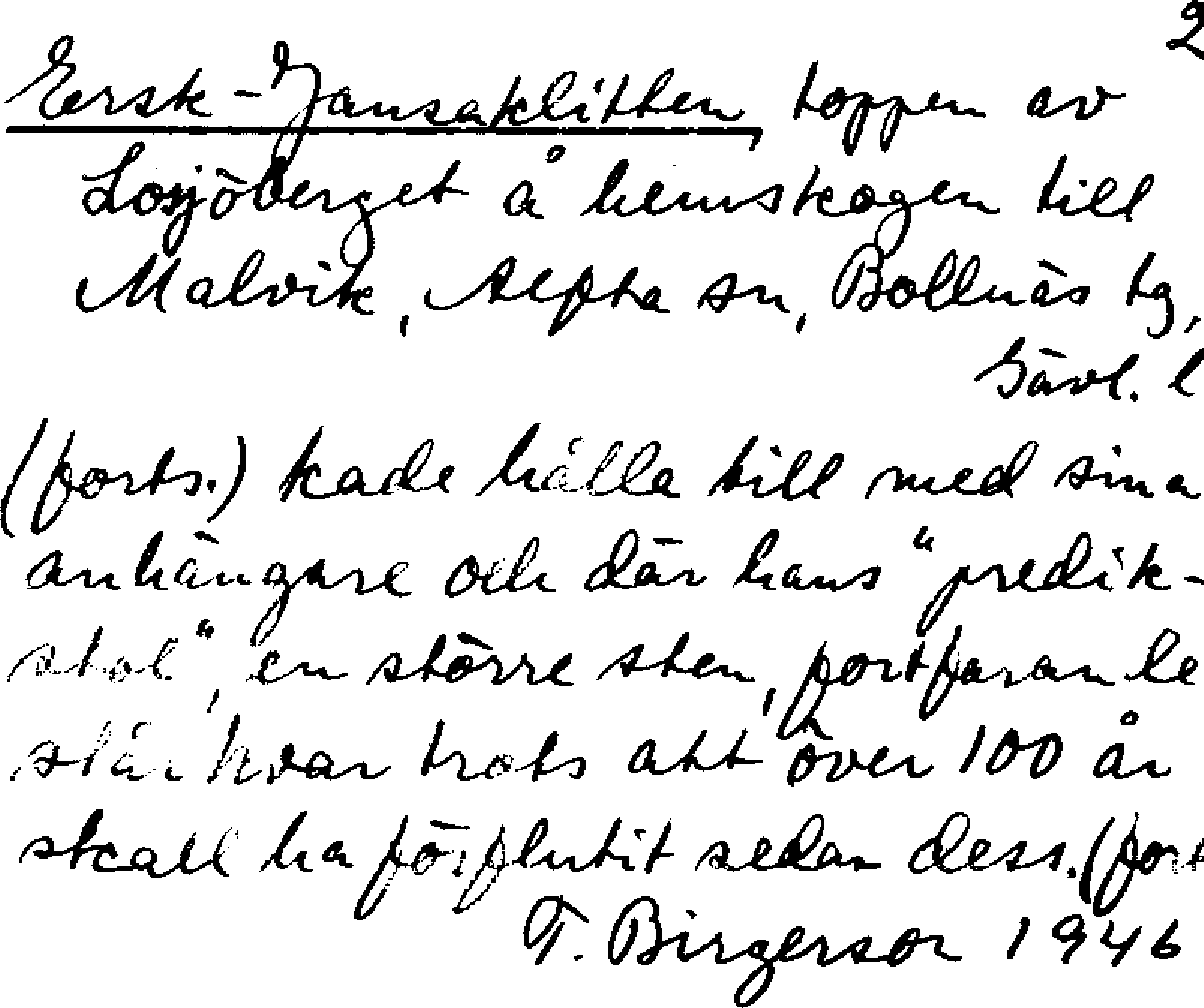 2
Eersk-Jansaklitten, toppen av
Losjöberget å hemskogen till
Malvik, Alfta sn, Bollnäs tg,
Gävl. l
(forts.) kade hålla till med sina
anhängare och där hans "predik-
stol", en större sten, fortfarande
står kvar trots att över 100 år
skall ha förflutit sedan dess. (fort
T. Birgerson 1946